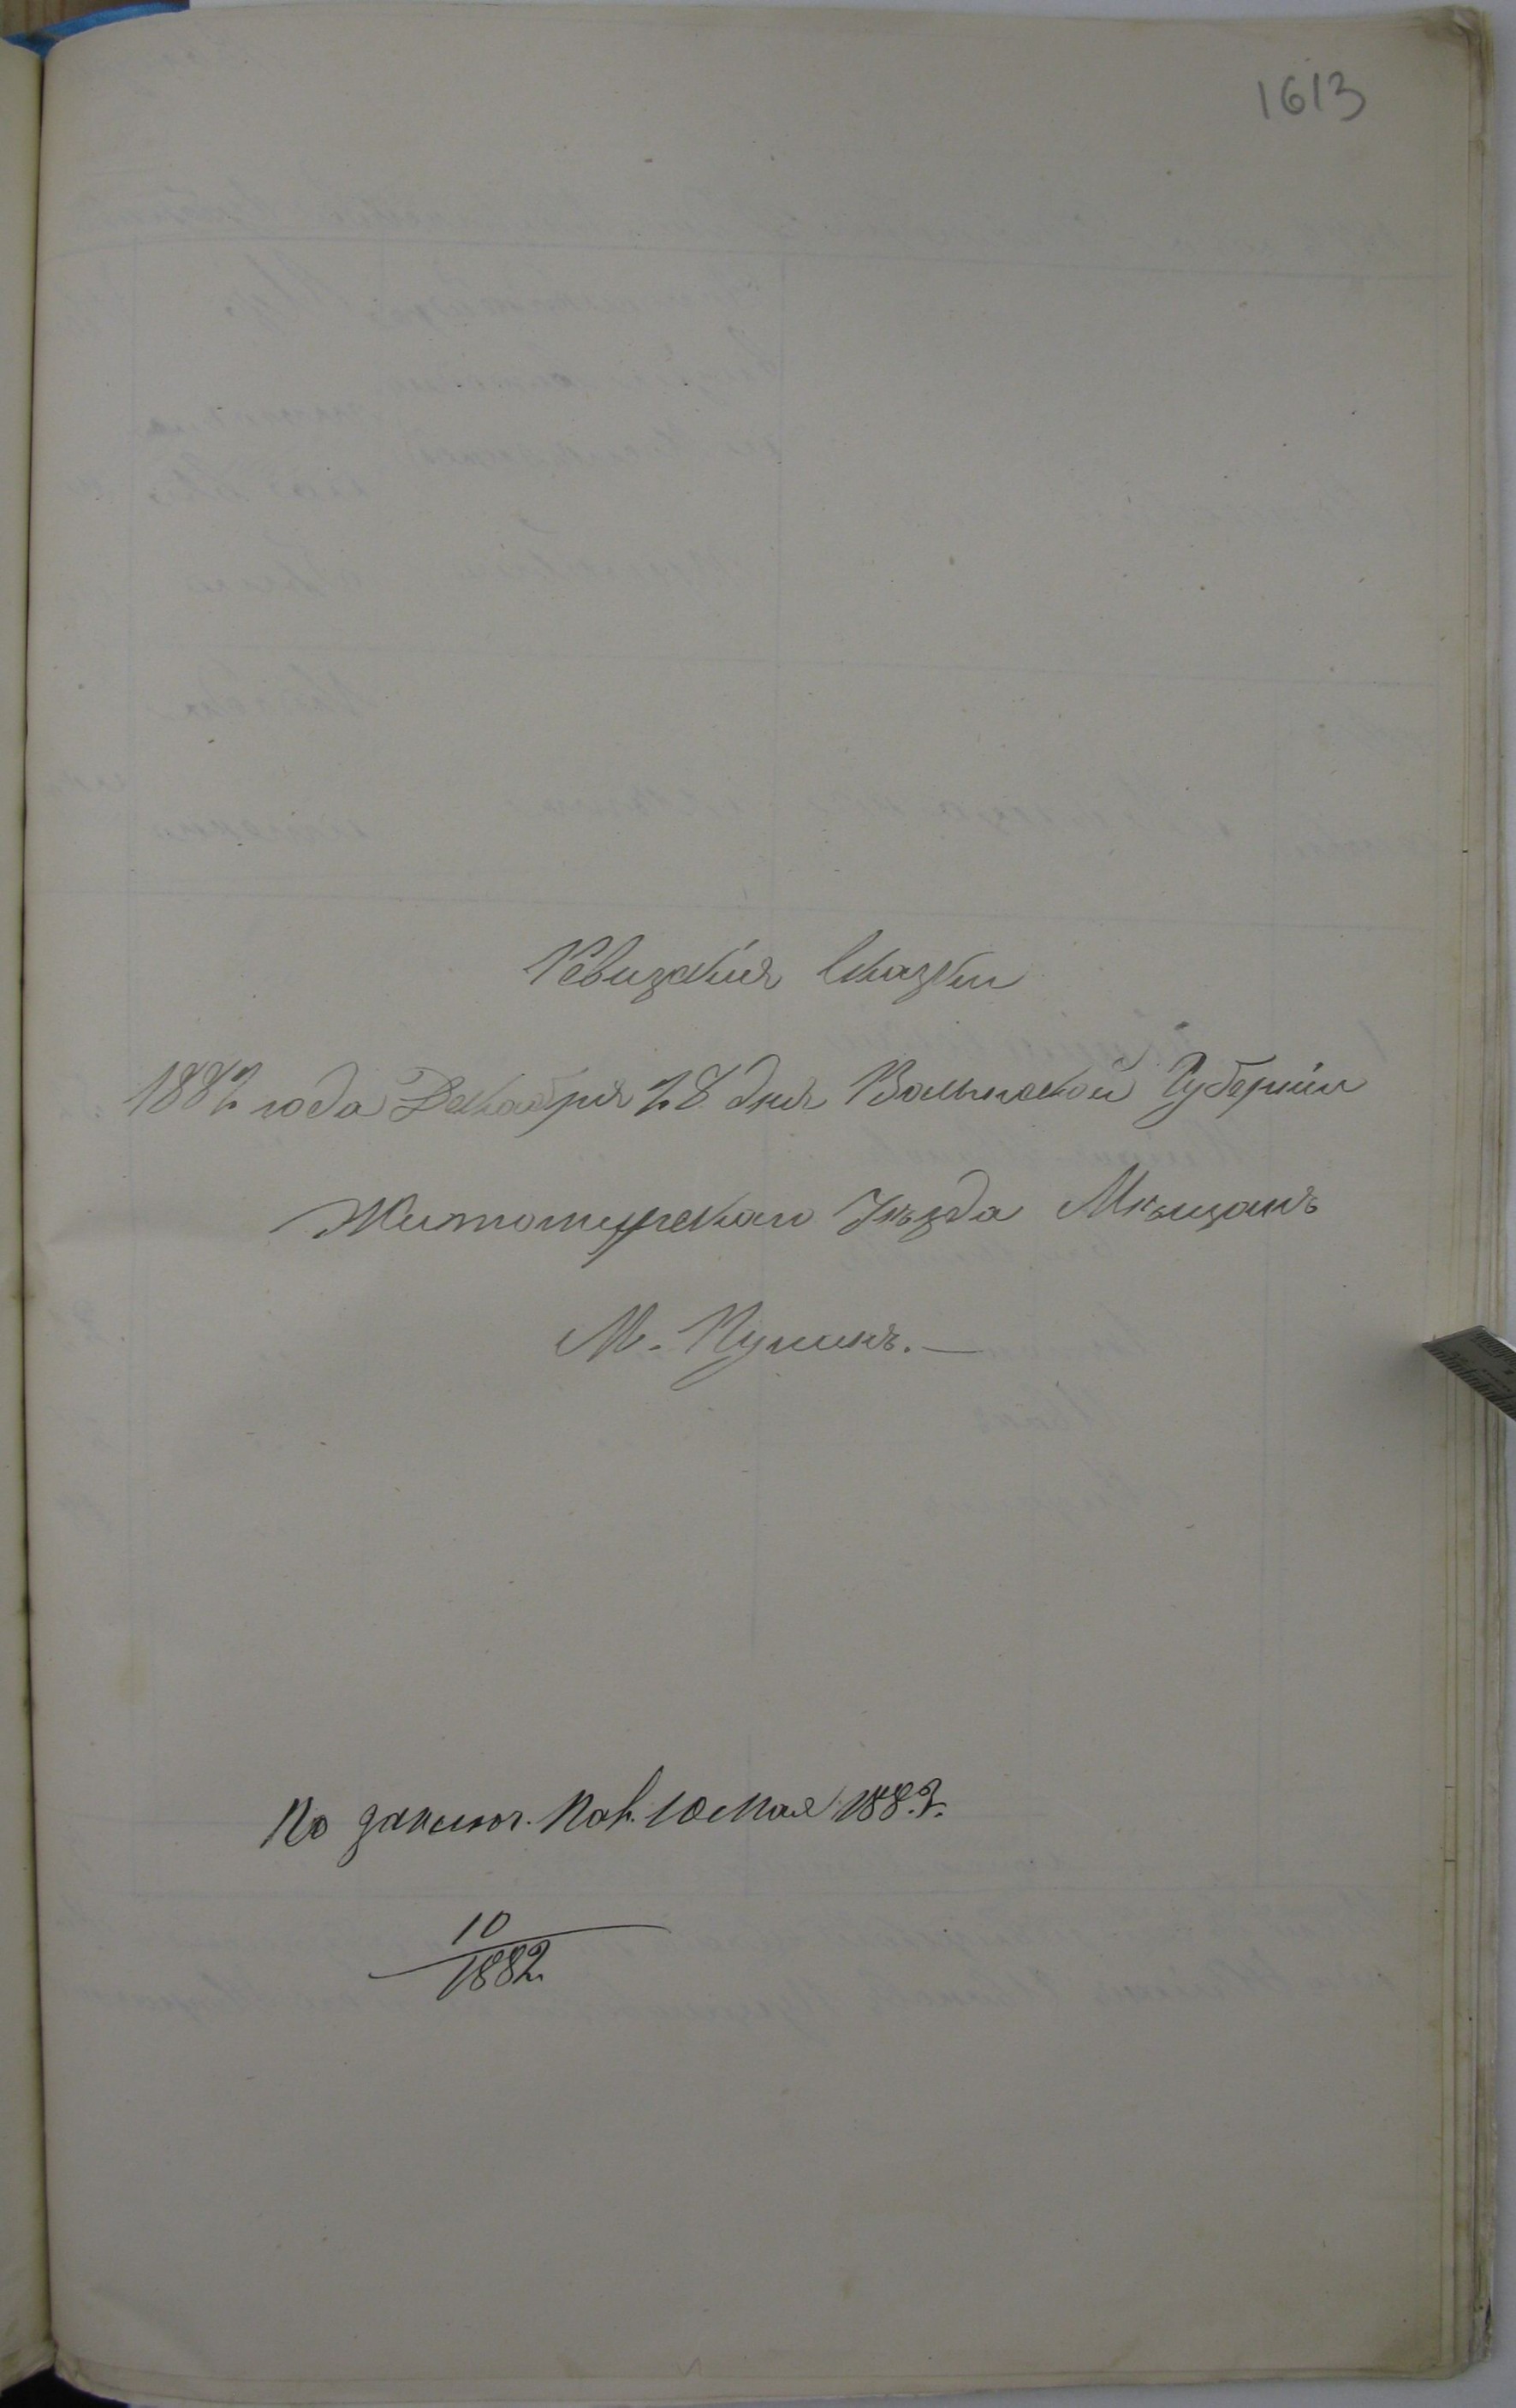 1613
Ревизскія Сказки
1882 года Декабря 28 дня Волынской Губерніи
Житомирскаго Уѣзда Мѣщанъ
М. Пулинъ.—
По заключ. Пал. 10 Мая 1883.
10
1882